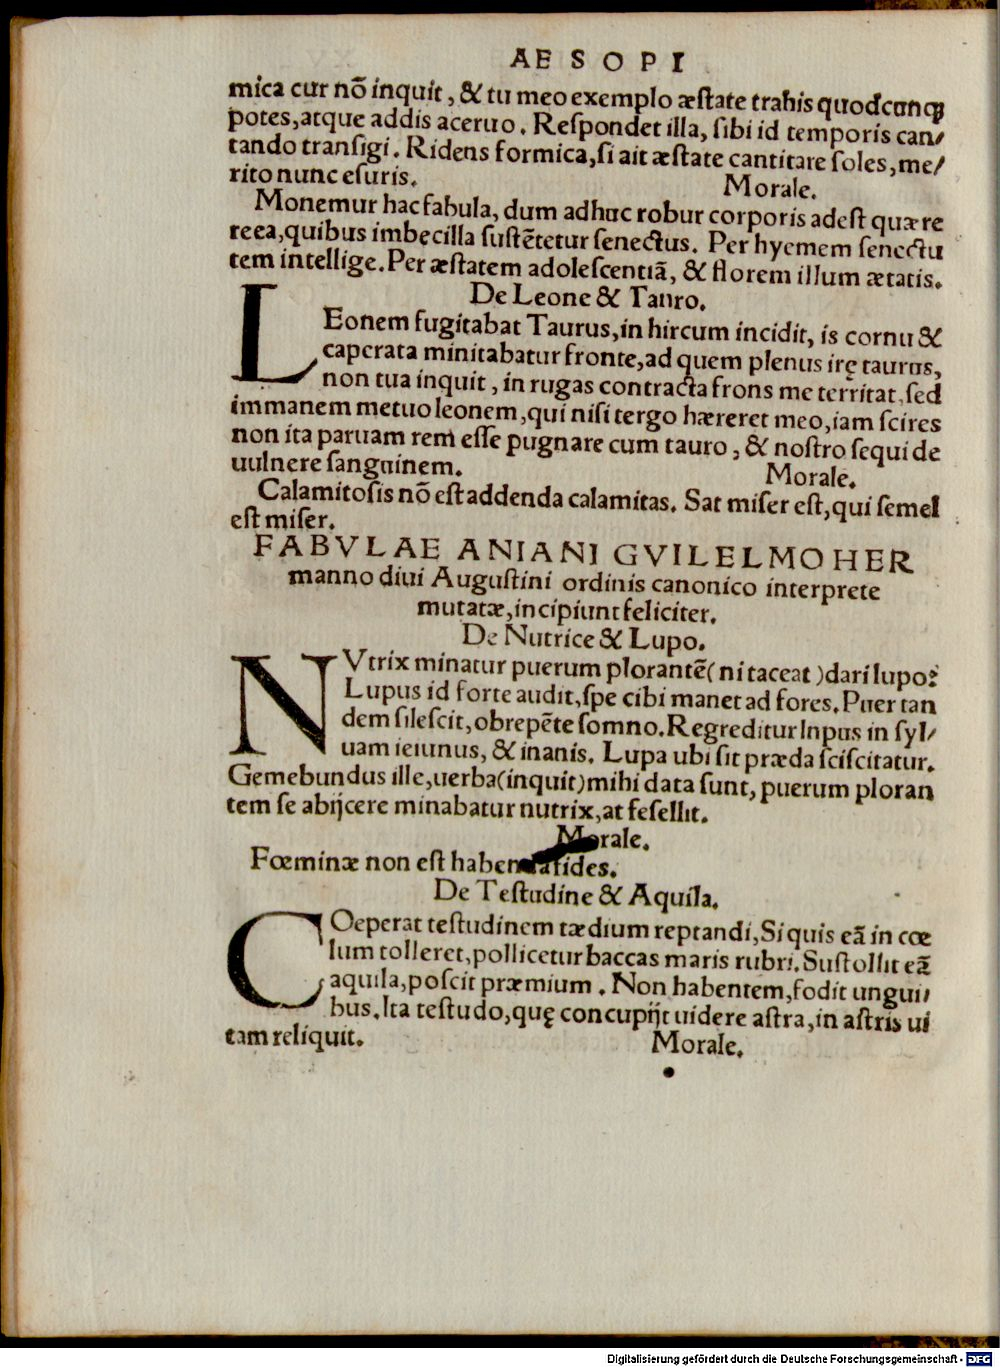 AESOPI
mica cur nõ inquit, & tu meo exemplo æstate trahis quodcunqꝫ
potes, atque addis aceruo. Respondet illa, sibi id temporis can/
tando transigi. Ridens formica, si ait æstate cantitare soles, me/
rito nunc esuris. Morale.
Monemur hac fabula, dum adhuc robur corporis adest quære
re ea, quibus imbecilla sustẽtetur senectus. Per hyemem senectu
tem intellige. Per æstatem adolescentiã, & florem illum ætatis.
De Leone & Tauro.
LEonem fugitabat Taurus, in hircum incidit, is cornu &
caperata minitabatur fronte, ad quem plenus irę taurus,
non tua inquit, in rugas contracta frons me territat, sed
immanem metuo leonem, qui nisi tergo hæreret meo, iam scires
non ita paruam rem esse pugnare cum tauro, & nostro sequi de
uulnere sanguinem. Morale.
Calamitosis nõ est addenda calamitas. Sat miser est, qui semel
est miser.
FABVLAE ANIANI GVILELMO HER
manno diui Augustini ordinis canonico interprete
mutatæ, incipiunt feliciter.
De Nutrice & Lupo.
NVtrix minatur puerum plorantẽ (ni taceat) dari lupo:
Lupus id forte audit, spe cibi manet ad fores. Puer tan
dem silescit, obrepẽte somno. Regreditur lupus in syl/
uam ieiunus, & inanis. Lupa ubi sit præda sciscitatur.
Gemebundus ille, uerba (inquit) mihi data sunt, puerum ploran
tem se abijcere minabatur nutrix, at fefellit.
Morale.
Fœminæ non est habenda fides.
De Testudine & Aquila.
COeperat testudinem tædium reptandi, Si quis eã in cœ
lum tolleret, pollicetur baccas maris rubri. Sustollit eã
aquila, poscit præmium. Non habentem, fodit ungui/
bus. Ita testudo, quę concupijt uidere astra, in astris ui
tam reliquit. Morale.
Digitalisierung gefördert durch die Deutsche Forschungsgemeinschaft - DFG